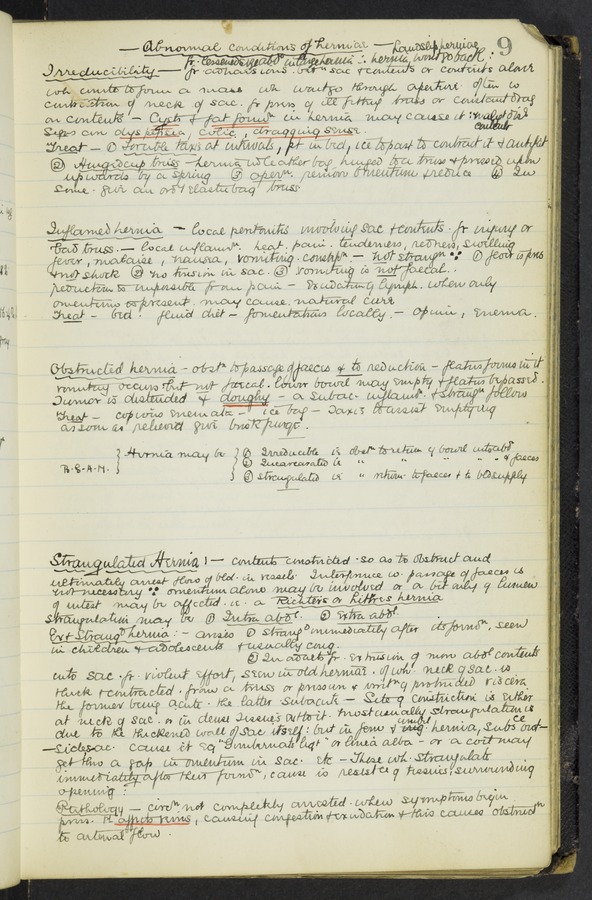 — Abnormal conditions of herniae — 9
Irreducibility — fr adhesions betn sac & contents or contents alone
wh unite to form a mass wh wont go through aperture. often is
contraction of neck of sac. fr press of ill fitting truss or constant drag
on contents — Cysts & fat found in hernia may cause it
Sigs are dyspepsia, colic, dragging sense.
Treat — ① Forcible taxis at intervals, pt in bed, ice to part to contract it & antiphl
② Hinged cup truss — hernia in leather bag hinged to a truss & pressed upon
upwards by a spring ③ opern. remove omentum & reduce ④ In
some. give an ord elastic bag truss
Inflamed hernia — local peritonitis involving sac & contents. fr injury or
bad truss. — local inflamn. heat. pain. tenderness, redness, swelling
fever, malaise, nausea, vomiting. constipn — not strangn ∵ ① flow is pres
& not shock ② no tension in sac. ③ vomiting is not faecal.
reduction is impossible fr own pain — Exudation of lymph. when only
omentum is present. may cause natural cure
Treat — bed. fluid diet — fomentations locally. — opium, Enema.
Obstructed hernia — obstn to passage of faeces & to reduction — flatus forms in it
vomiting occurs but not faecal. lower bowel may empty & flatus be passed.
Tumor is distended & doughy — a subac. inflamn. & strangn follows
Treat — copious enemata — ice bag — Taxis to assist emptying
as soon as relieved give brisk purge.
B.G.A.M. } Hernia may be { ① Irreducible ie obstn to return of bowel into abd
② Incarcerated ie " " " " & faeces
③ Strangulated ie " return to faeces & to bld supply
Strangulated Hernia! — contents constricted so as to obstruct and
ultimately arrest flow of bld. in vessels. Interference w. passage of faeces is
not necessary ∵ omentum alone may be involved or a bit only of lumen
of intest may be affected ie. a Richters or Littres hernia
Strangulation may be ① Intra abdl. ② Extra abdl.
Ext Strangd hernia: — arises ① strangd immediately after its formn, seen
in children & adolescents & usually cong.
② In adults fr. Extrusion of more abdl contents
into sac. fr. violent effort, seen in old herniae. of wh. neck of sac is
thick & contracted. from a truss or pressure & of protruded viscera
the former being acute. the latter subacute — Site of constriction is either
at neck of sac. or in dense tissues outside it. most usually strangulation is
due to the thickened wall of sac itself: but in fem & umbil hernia, subsce out-
—side sac. cause it eg "Gimbernats ligt" or linea alba — or a coil may
get thro a gap in omentum in sac. etc — Those wh. strangulate
immediately after their formn, cause is resistce of tissues surrounding
opening.
Pathology — circn not completely arrested when symptoms begin
press. 1st affects veins, causing congestion & exudation & this causes obstructn
to arterial flow.